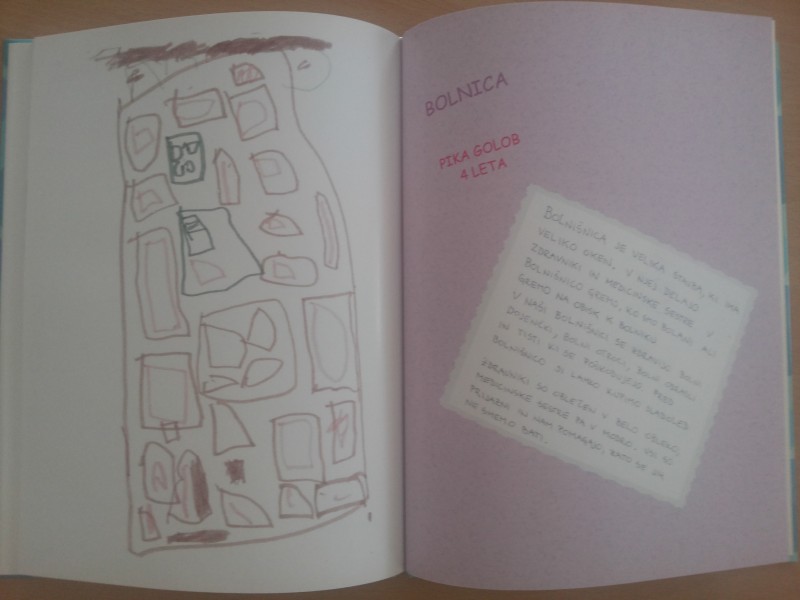 BOLNICA
PIKA GOLOB
4 LETA
BOLNIŠNICA JE VELIKA STAVBA, KI IMA
VELIKO OKEN. V NJEJ DELAJO
ZDRAVNIKI IN MEDICINSKE SESTRE. V
BOLNIŠNICO GREMO, KO SMO BOLANI ALI
GREMO NA OBISK K BOLNIKU.
V NAŠI BOLNIŠNICI SE ZDRAVIJO BOLNI
DOJENČKI, BOLNI OTROCI, BOLNI ODRASLI
IN TISTI, KI SE POŠKODUJEJO. PRED
BOLNIŠNICO SI LAHKO KUPIMO SLADOLED.
ZDRAVNIKI SO OBLEČENI V BELO OBLEKO,
MEDICINSKE SESTRE PA V MODRO. VSI SO
PRIJAZNI IN NAM POMAGAJO, ZATO SE JIH
NE SMEMO BATI.